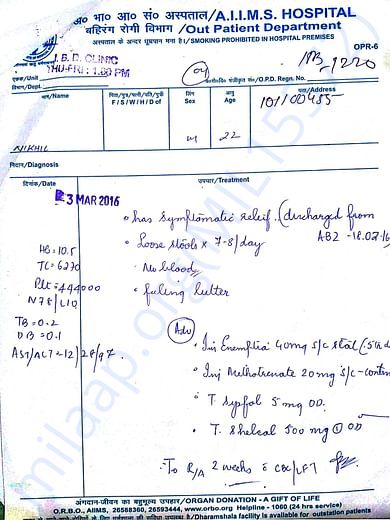 अ० भा० आ० सं० अस्पताल/A.I.I.M.S. HOSPITAL
बहिरंग रोगी विभाग/Out Patient Department
अस्पताल के अन्दर धूम्रपान मना है।/SMOKING PROHIBITED IN HOSPITAL PREMISES
OPR-6
I. B. D. CLINIC
THU-FRI: 1.00 PM
एकक/Unit
विभाग/Dept.
O.P.D. Regn. No.
1220
नाम/Name
पिता/पुत्र/पत्नी/पति/पुत्री
F/S/W/H/D of
लिंग
Sex
आयु
Age
पता/Address
101100455
NIKHIL
M
22
निदान/Diagnosis
दिनांक/Date
उपचार/Treatment
3 MAR 2016
• has symptomatic relief. (discharged from
AB2 -18.02.16
• Loose stools x 7-8/day
• No blood
• feeling better
HB = 10.5
TC = 6270
Plt = 444000
N78/L10
TB = 0.2
DB = 0.1
AST/ALT = 12/28/97
Adv
• Inj 40mg S/C stat (5th d
• Inj Methotrexate 20mg S/C-contin
• T. Sypfol 5mg OD.
• T. Shelcal 500mg OD
To R/A 2 weeks c CBC/LFT
milaap.org
अंगदान-जीवन का बहुमूल्य उपहार/ORGAN DONATION - A GIFT OF LIFE
O.R.B.O., AIIMS, 26588360, 26593444, www.orbo.org Helpline - 1060 (24 hrs service)
Dharamshala facility is available for outstation patients